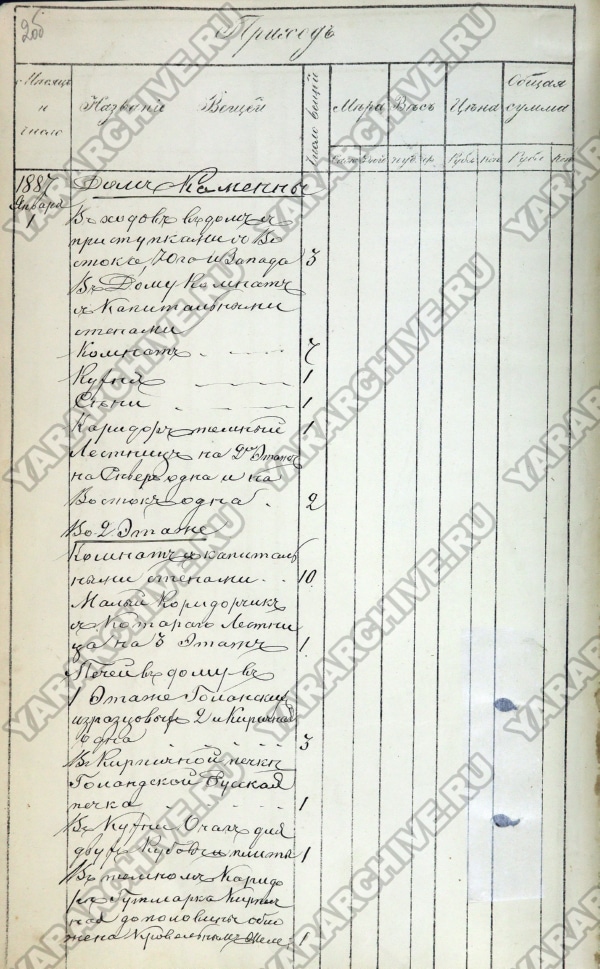 25
200
Приходъ
Мѣсяцъ и число
Названіе Вещей
Число вещей
Мѣра Вѣсъ Цѣна Общая сумма
пуд. ф. Рубл. коп. Рубл. коп.
1887 Января 1
Домъ Каменны
Входовъ въ домъ с
приступками с Во
стока, Юга и Запада 3
Въ Дому Комнатъ
с Капитальными
стенами
Комнатъ 7
Кухня 1
Сени 1
Каридоръ темный 1
Лестницъ на 2й Этажъ
на Северъ одна и на
Востокъ одна 2
Во 2 Этаже
Комнатъ с капиталь
ными стенами 10
Малый Коридорчикъ
с Котараго Лестни
ца на 3 Этажъ 1
Печей в дому в
1 Этаже Голански
изразцовые 2 и Кирпичная
одна 3
Въ Кирпичной печки
Голандской Руская
печка 1
Въ Кухни Очагъ для
двух Кубовъ и плиты 1
Въ темномъ Каридо
ре Гутмарка Кирпич
ная до половины обло
жена Кровельнымъ Желе 1
YARARCHIVE.RU